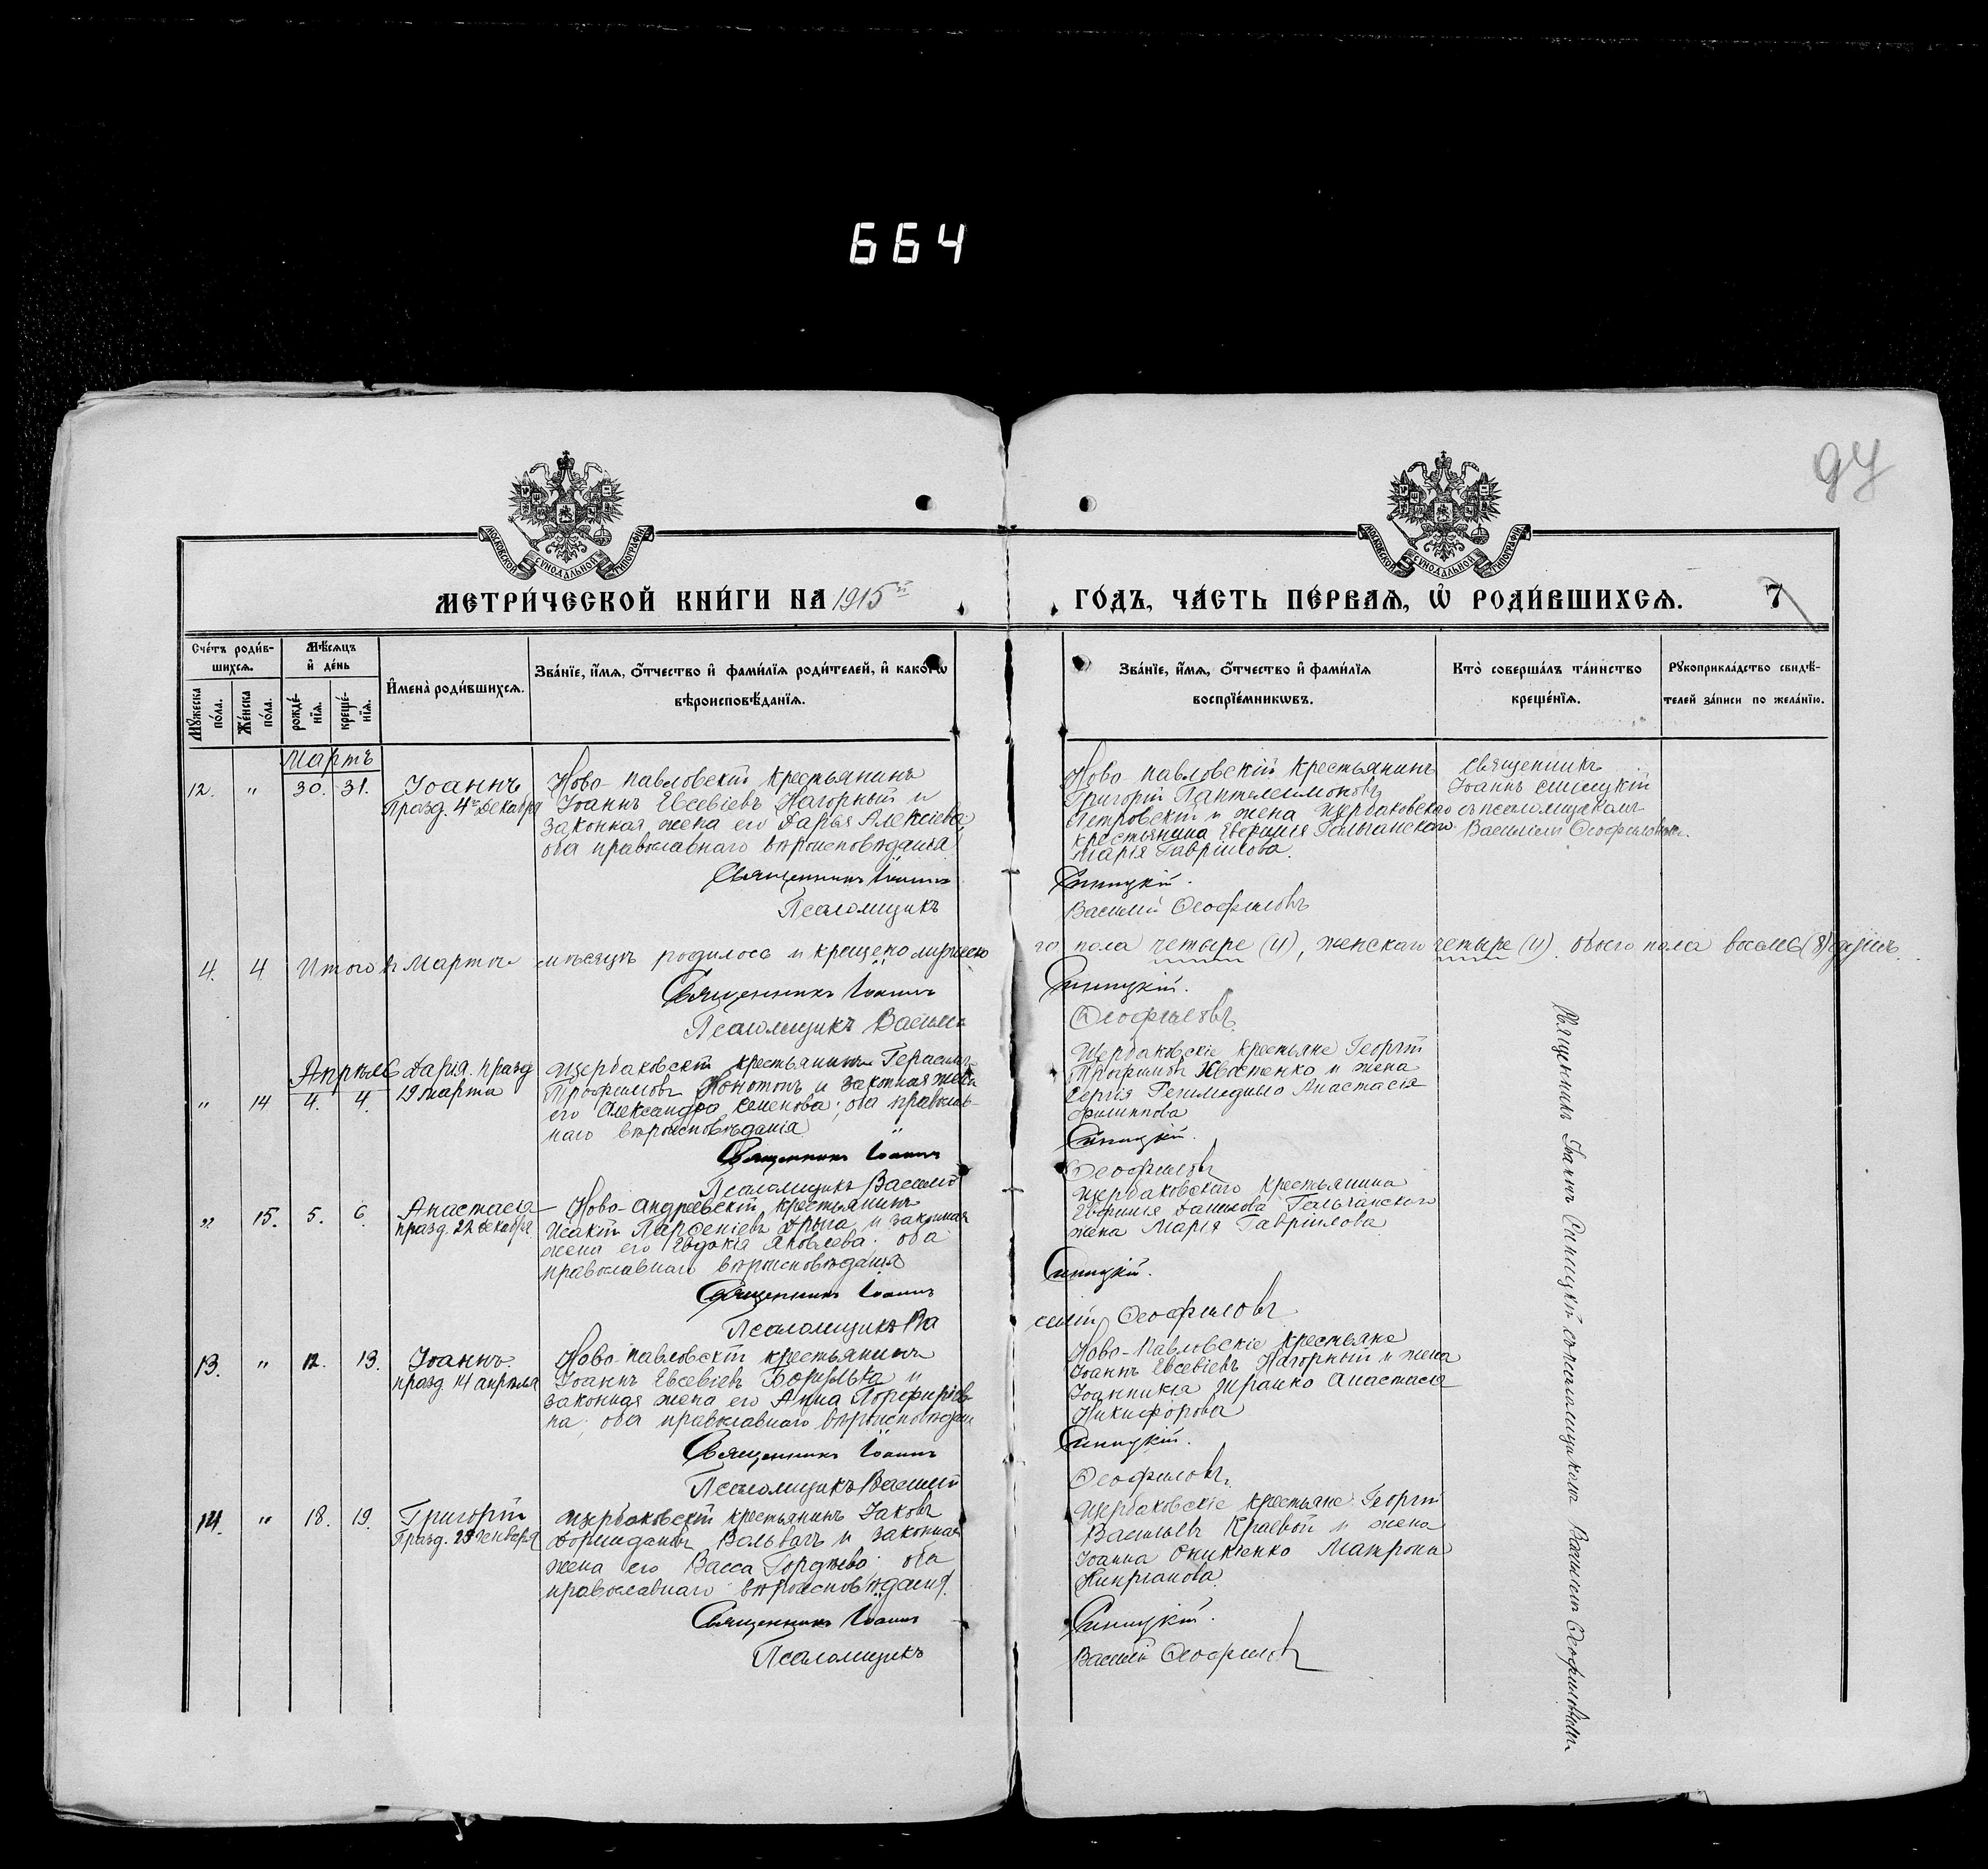 664
97
МОСКОВСКОЙ СѴНОДАЛЬНОЙ ТИПОГРАФІИ
МОСКОВСКОЙ СѴНОДАЛЬНОЙ ТИПОГРАФІИ
МЕТРИ́ЧЕСКОЙ КНИ́ГИ НА 1915й
ГО́ДЪ, ЧА́СТЬ ПЕ́РВАѦ, Ѡ҆ РОДИ́ВШИХСѦ. 7
Сче́тъ роди́в-
шихсѧ.
Мꙋ́жеска по́ла.
Же́нска по́ла.
Мѣ́сѧцъ
и҆ де́нь
рожде́-
нїѧ.
креще́-
нїѧ.
И҆мена̀ роди́вшихсѧ.
Зва́нїе, и҆́мѧ, ѻ҆́тчество и҆ фами́лїѧ роди́телей, и҆ како́гѡ
вѣроисповѣ́данїѧ.
Зва́нїе, и҆́мѧ, ѻ҆́тчество и҆ фами́лїѧ
воспрїе́мникѡвъ.
Кто̀ соверша́лъ та́инство
креще́нїѧ.
Рꙋкоприкла́дство свидѣ́-
телей за́писи по жела́нїю.
Мартъ
12. " 30. 31. Іоаннъ
Празд. 4го декабря
Ново-павловскій крестьянинъ
Іоаннъ Евсевіевъ Нагорный и
законная жена его Дарья Алексіева;
оба православнаго вѣроисповѣданія
Священникъ Іоаннъ
Псаломщикъ
Ново-павловскій крестьянинъ
Григорій Пантелеимоновъ
Петровскій и жена Щербаковскаго
крестьянина Евфимія Гальчанскаго
Марія Гаврилова.
Синицкій.
Василій Ѳеофиловъ
Священникъ
Іоаннъ Синицкій
съ псаломщикомъ
Василіемъ Ѳеофиловымъ.
4. 4 Итого въ Мартѣ мѣсяцѣ родилось и крещено мужеска
го пола четыре (4), женскаго четыре (4). обоего пола восемь (8) душъ.
Священникъ Іоаннъ
Синицкій.
Псаломщикъ Василій
Ѳеофиловъ
Апрѣль
" 14 4. 4. Дарія. празд
19 марта
Щербаковскій крестьянинъ Герасимъ
Трофимовъ Конотопъ и законная жена
его Александра Семенова; оба православ-
наго вѣроисповѣданія
Священникъ Іоаннъ
Псаломщикъ Василій
Щербаковскіе крестьяне Георгій
Трофимовъ Хвостенко и жена
Сергія Анастасія
Филиппова
Синицкій.
Ѳеофиловъ
" 15. 5. 6. Анастасія
празд. 22 декабря
Ново-андреевскій крестьянинъ
Исакій Парѳеніевъ Дрыга и законная
жена его Евдокія Яковлева. оба
православнаго вѣроисповѣданія
Священникъ Іоаннъ
Псаломщикъ Ва
Щербаковскаго крестьянина
Евфимія Данилова Гальчанскаго
жена Марія Гаврилова
Синицкій.
силій Ѳеофиловъ
13. " 12. 13. Іоаннъ.
празд. 14 апрѣля
Ново-павловскій крестьянинъ
Іоаннъ Евсевіевъ и
законная жена его Анна Порфиріев-
на; оба православнаго вѣроисповѣдан
Священникъ Іоаннъ
Псаломщикъ Василій
Ново-Павловскіе крестьяне
Іоаннъ Евсевіевъ Нагорный и жена
Іоанникія Анастасія
Никифорова
Синицкій.
Ѳеофиловъ.
14. " 18. 19. Григорій
Празд. 25 января
Щербаковскій крестьянинъ Іаковъ
Вальвачъ и законная
жена его Васса Гордѣева. оба
православнаго вѣроисповѣданія.
Священникъ Іоаннъ
Псаломщикъ
Щербаковскіе крестьяне Георгій
Васильевъ Краевой и жена
Іоанна Оникіенко Матрона
Кипріанова
Синицкій.
Василій Ѳеофиловъ
Священникъ Іоаннъ Синицкій съ псаломщикомъ Василіемъ Ѳеофиловымъ